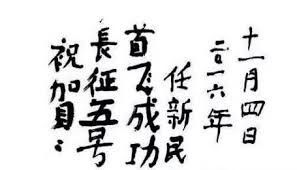 祝賀：
長征五号
首飞成功
任新民
二〇一六年
十一月四日